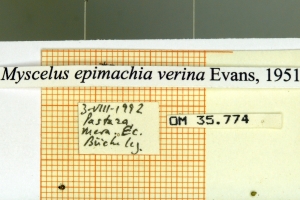 Myscelus epimachia verina Evans, 1951
3-VIII-1992
Pastaza
Mera. Ec.
Büche lg.
OM 35.774